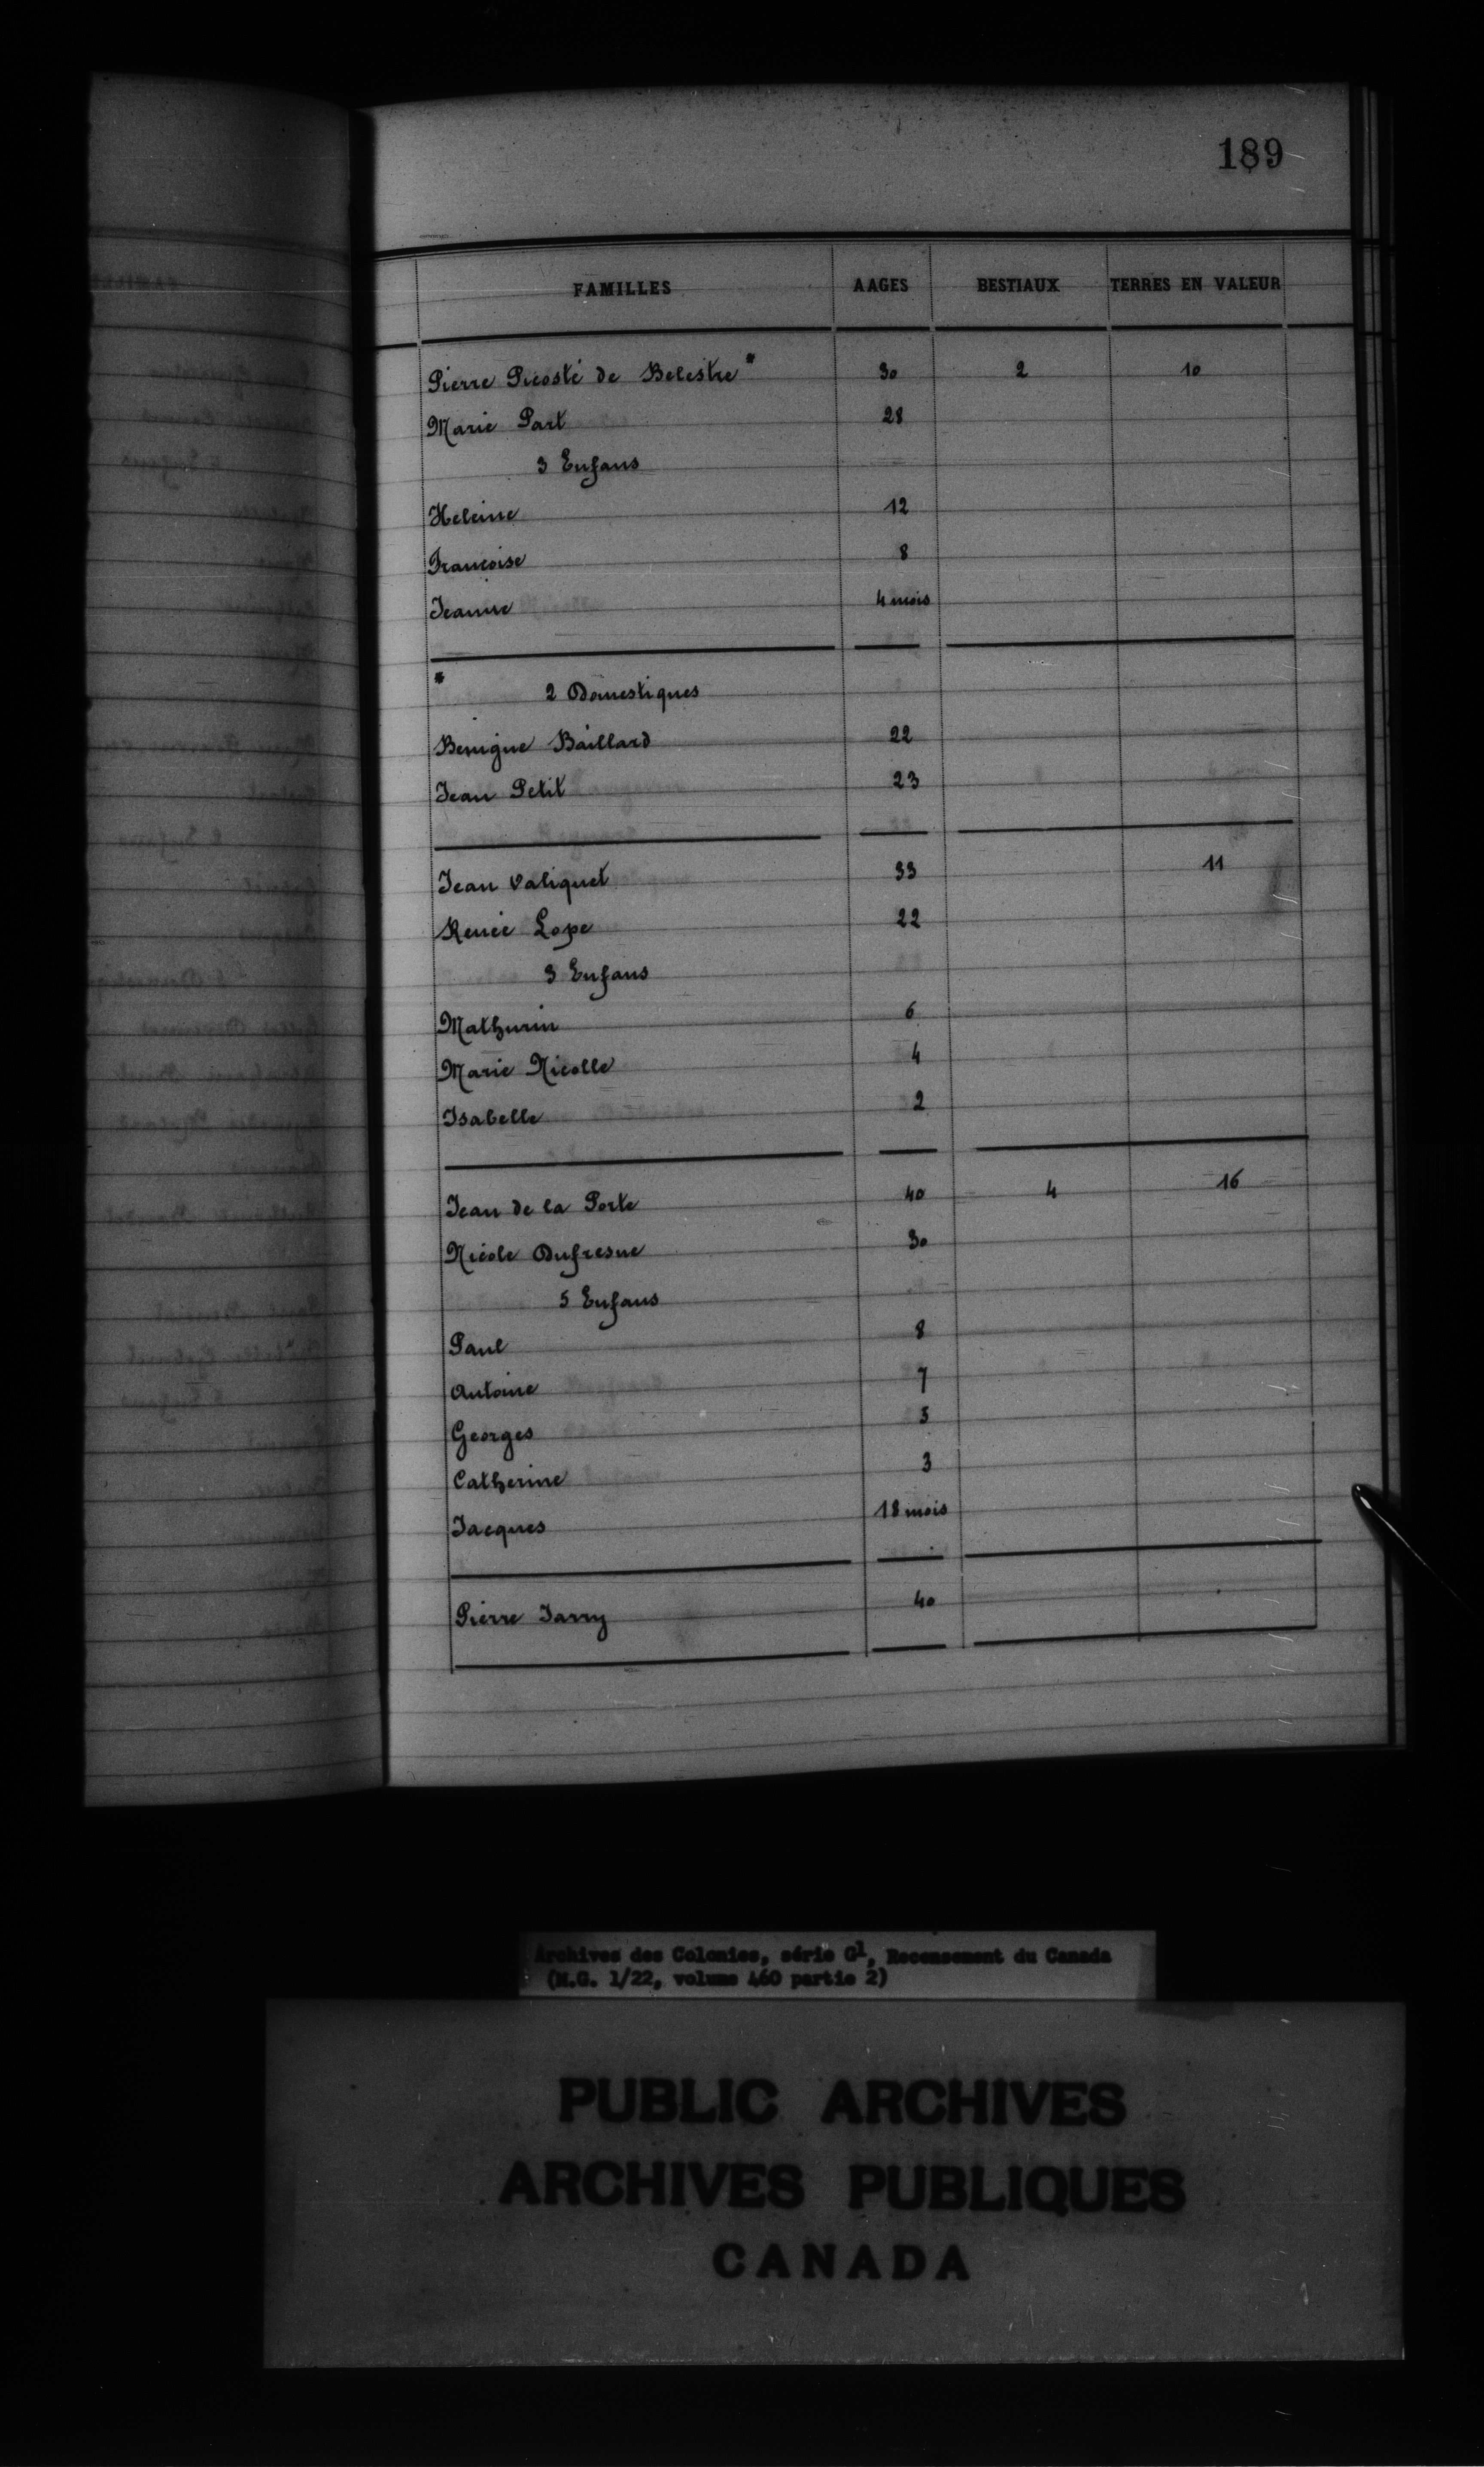 189
FAMILLES AAGES BESTIAUX TERRES EN VALEUR
Pierre Picosté de Belestre* 30 2 10
Marie Part 28
3 Enfans
Heleine 12
Francoise 8
Jeanne 4 mois
* 2 Domestiques
Benigne Baillard 22
Jean Petit 23
Jean Valiquet 33 11
Renée Lope 22
3 Enfans
Mathurin 6
Marie Nicolle 4
Isabelle 2
Jean de la Porte 40 4 16
Nicole Dufresne 30
5 Enfans
Paul 8
Antoine 7
Georges 5
Catherine 3
Jacques 18 mois
Pierre Jarry 40
Archives des Colonies, série G1, Recensement du Canada
(M.G. 1/22, volume 460 partie 2)
PUBLIC ARCHIVES
ARCHIVES PUBLIQUES
CANADA